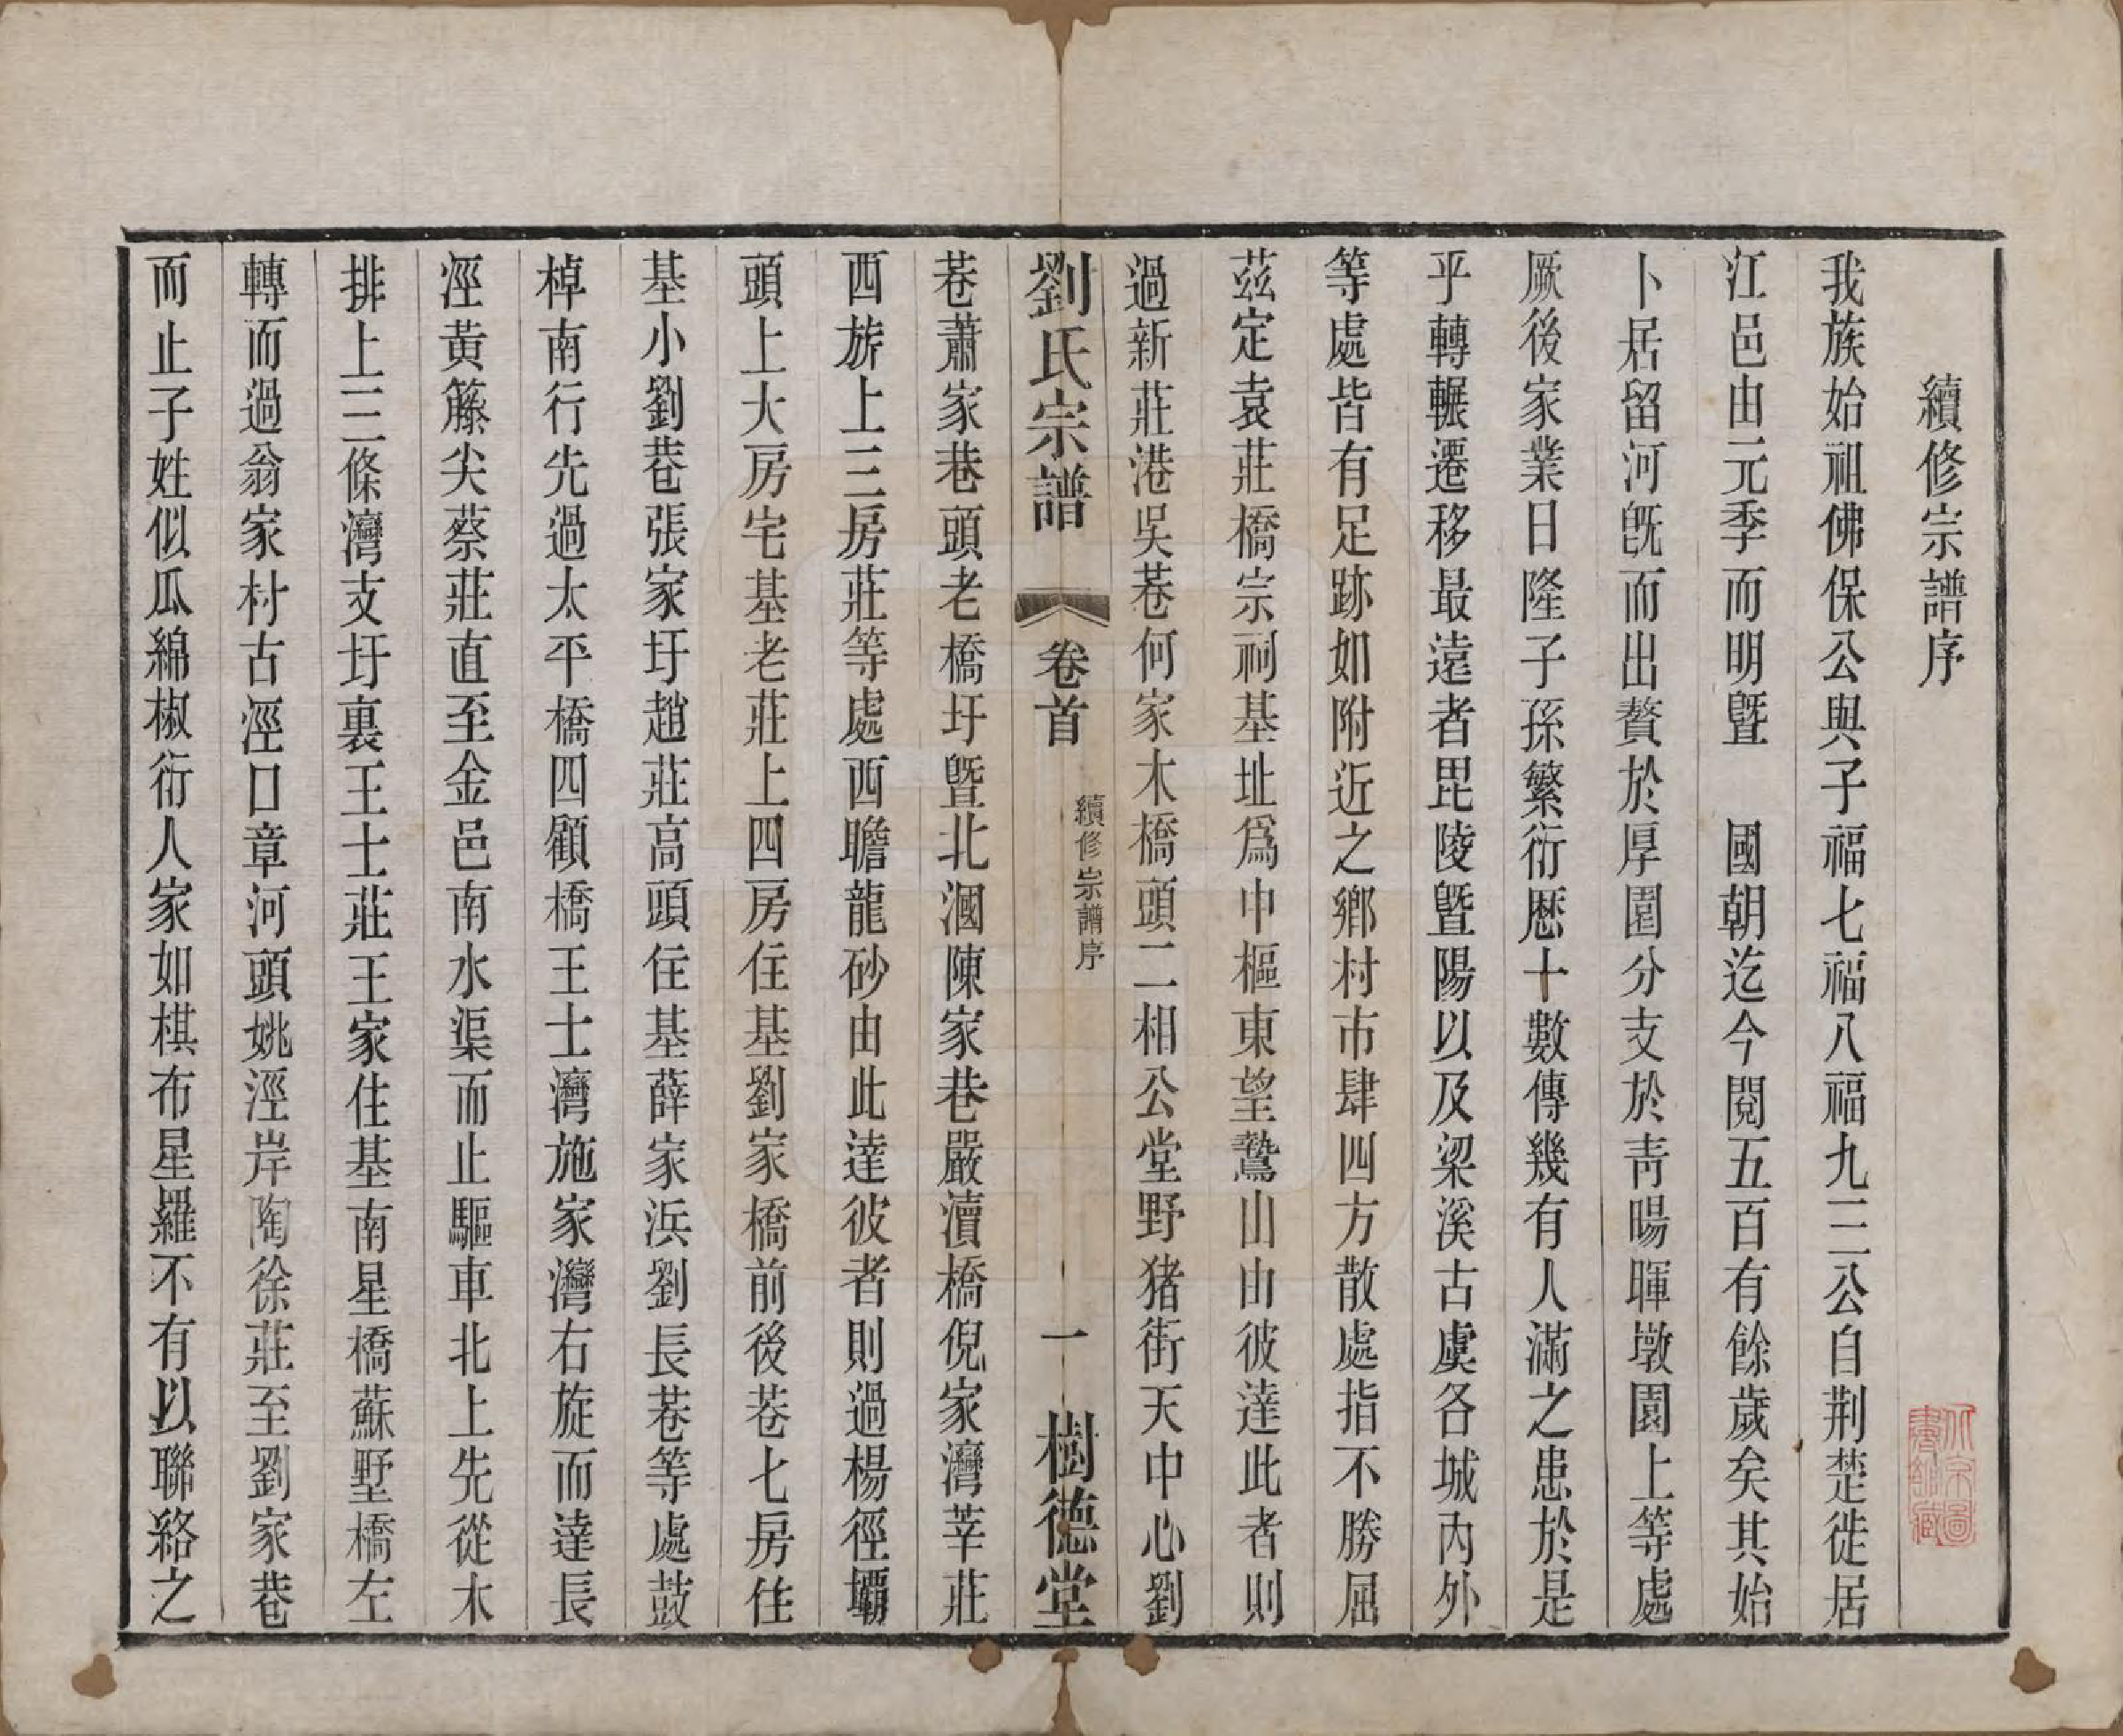 續修宗譜序
我族始祖佛保公與子福七福八福九三公自荆楚徙居
江邑由元季而明曁　國朝迄今閱五百有餘歲矣其始
卜居留河旣而出贅於厚園分支於靑暘暉墩園上等處
厥後家業日隆子孫繁衍歷十數傳幾有人滿之患於是
乎轉輾遷移最遠者毘陵曁陽以及梁溪古虞各城內外
等處皆有足跡如附近之鄉村市肆四方散處指不勝屈
茲定袁莊橋宗祠基址爲中樞東望鷙山由彼達此者則
過新莊港吳巷何家木橋頭二相公堂野猪街天中心劉
劉氏宗譜　卷首　續修宗譜序　一　樹德堂
巷蕭家巷巷頭老橋圩曁北漍陳家巷嚴瀆橋倪家灣莘莊
西族上三房莊等處西瞻龍砂由此達彼者則過楊徑壩
頭上大房宅基老莊上四房住基劉家橋前後巷七房住
基小劉巷張家圩趙莊高頭住基薛家浜劉長巷等處鼓
棹南行先過太平橋四顧橋王士灣施家灣右旋而達長
涇黃籐尖蔡莊直至金邑南水渠而止驅車北上先從木
排上三條灣支圩裏王士莊王家住基南星橋蘇墅橋左
轉而過翁家村古涇口章河頭姚涇岸陶徐莊至劉家巷
而止子姓似瓜綿椒衍人家如棋布星羅不有以聯絡之